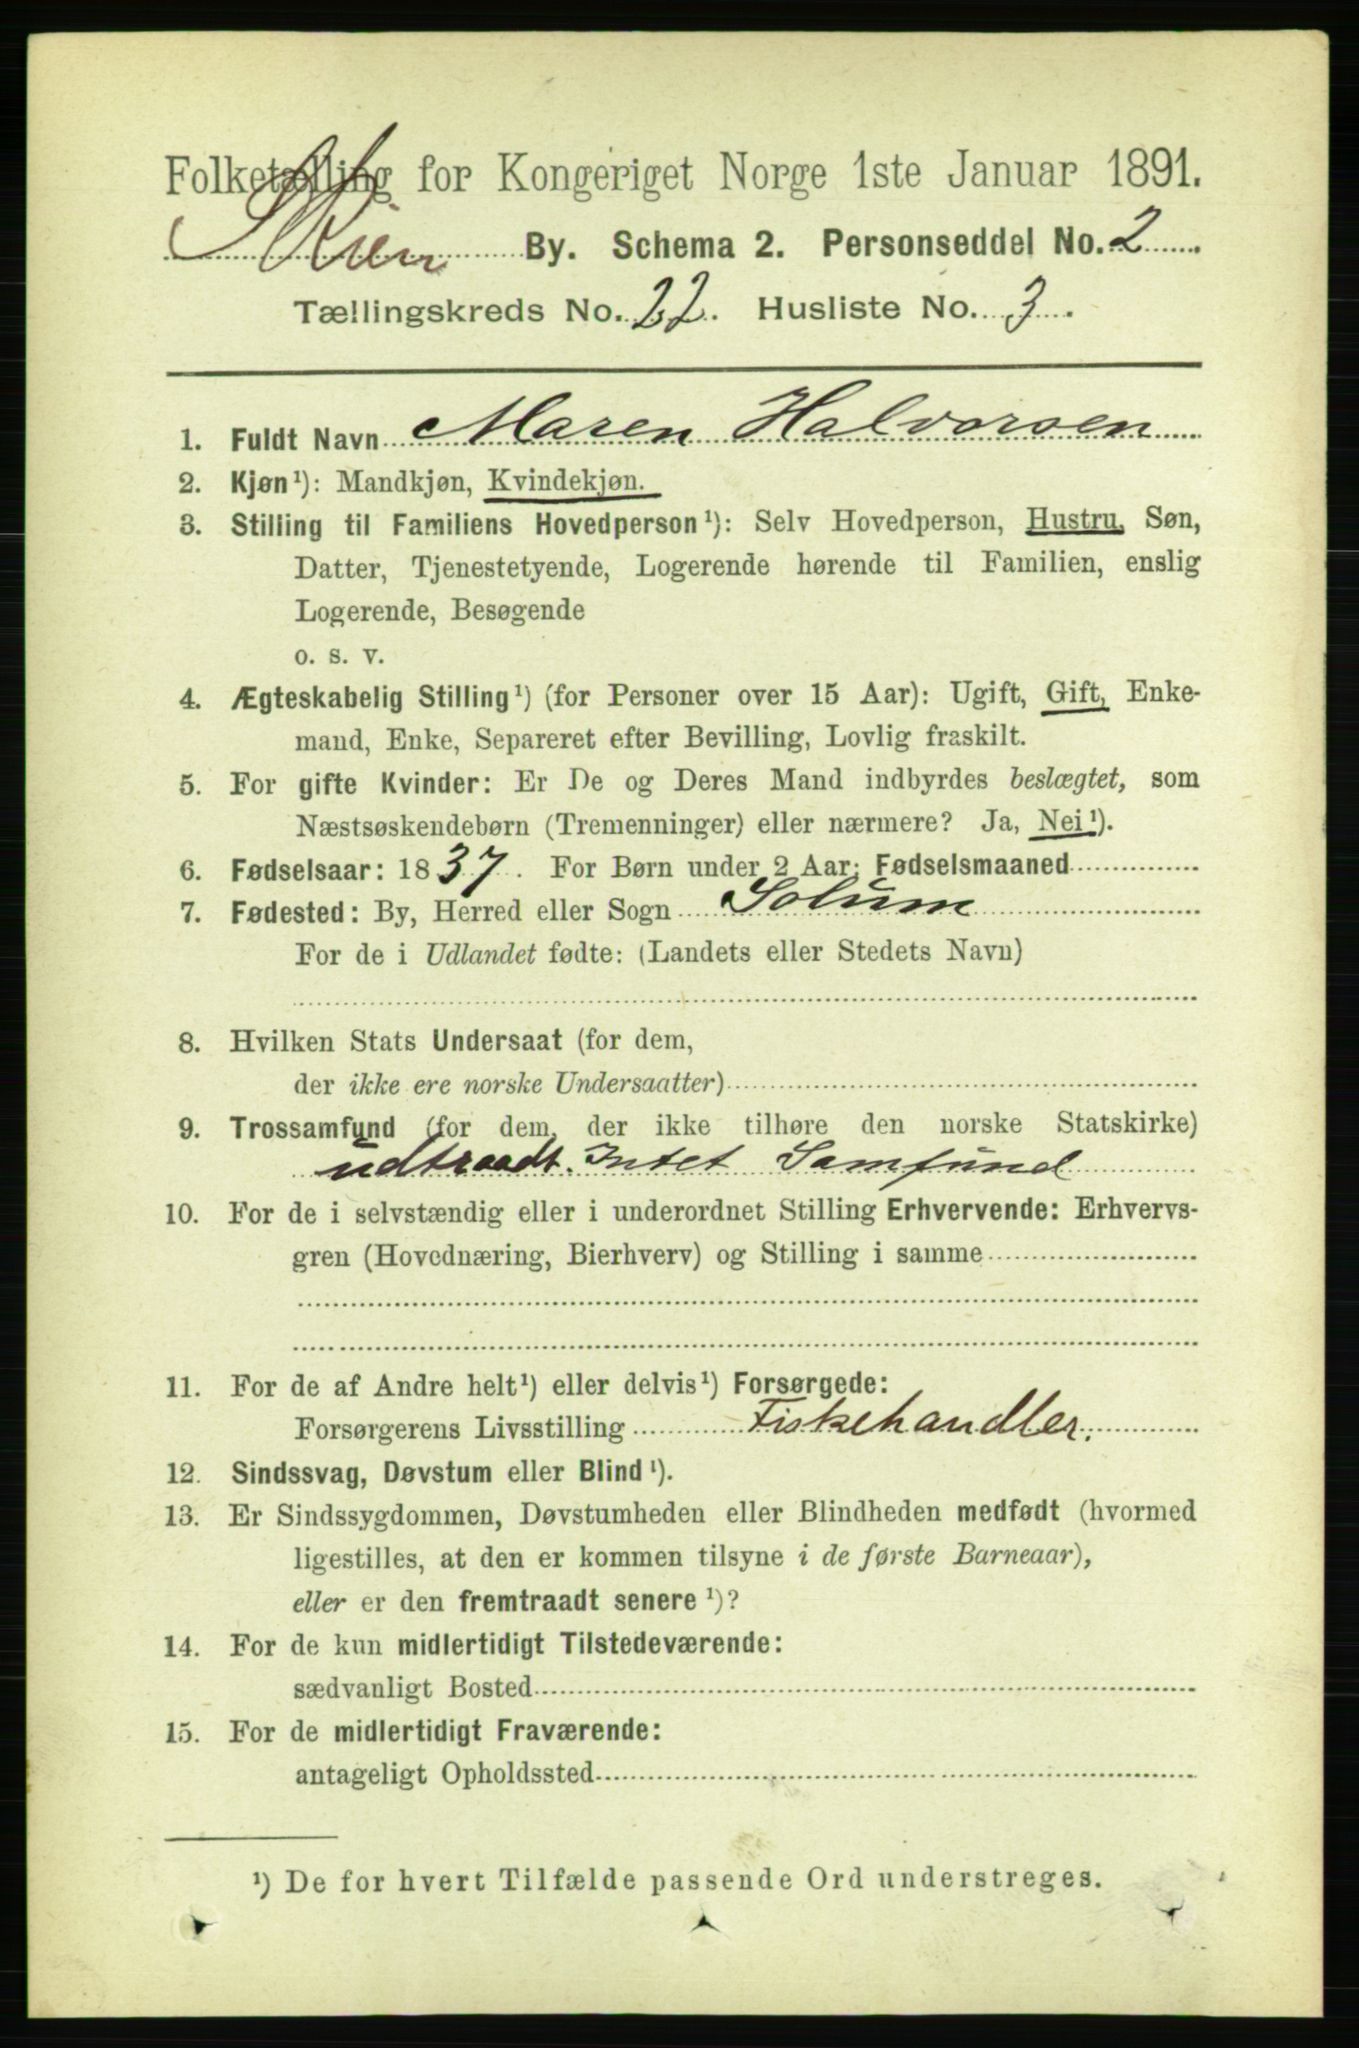 Folketælling for Kongeriget Norge 1ste Januar 1891.
Skien By. Schema 2. Personseddel No. 2
Tællingskreds No. 22. Husliste No. 3.
1. Fuldt Navn Maren Halvorsen
2. Kjøn¹): Mandkjøn, Kvindekjøn.
3. Stilling til Familiens Hovedperson¹): Selv Hovedperson, Hustru, Søn,
Datter, Tjenestetyende, Logerende hørende til Familien, enslig
Logerende, Besøgende
o. s. v.
4. Ægteskabelig Stilling¹) (for Personer over 15 Aar): Ugift, Gift, Enke-
mand, Enke, Separeret efter Bevilling, Lovlig fraskilt.
5. For gifte Kvinder: Er De og Deres Mand indbyrdes beslægtet, som
Næstsøskendebørn (Tremenninger) eller nærmere? Ja, Nei¹).
6. Fødselsaar: 1837. For Børn under 2 Aar: Fødselsmaaned
7. Fødested: By, Herred eller Sogn Solum
For de i Udlandet fødte: (Landets eller Stedets Navn)
8. Hvilken Stats Undersaat (for dem,
der ikke ere norske Undersaatter)
9. Trossamfund (for dem, der ikke tilhøre den norske Statskirke)
udtraadt. Intet Samfund
10. For de i selvstændig eller i underordnet Stilling Erhvervende: Erhvervs-
gren (Hovednæring, Bierhverv) og Stilling i samme
11. For de af Andre helt¹) eller delvis¹) Forsørgede:
Forsørgerens Livsstilling Fiskehandler.
12. Sindssvag, Døvstum eller Blind¹).
13. Er Sindssygdommen, Døvstumheden eller Blindheden medfødt (hvormed
ligestilles, at den er kommen tilsyne i de første Barneaar),
eller er den fremtraadt senere¹)?
14. For de kun midlertidigt Tilstedeværende:
sædvanligt Bosted
15. For de midlertidigt Fraværende:
antageligt Opholdssted
¹) De for hvert Tilfælde passende Ord understreges.